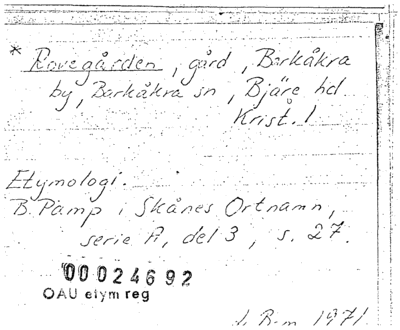 * Rovegården, gård, Barkåkra
by, Barkåkra sn, Bjäre hd
Krist. l
Etymologi.
B. Pamp i Skånes Ortnamn,
serie A, del 3, s. 27.
00024692
OAU etym reg
B-m 1971